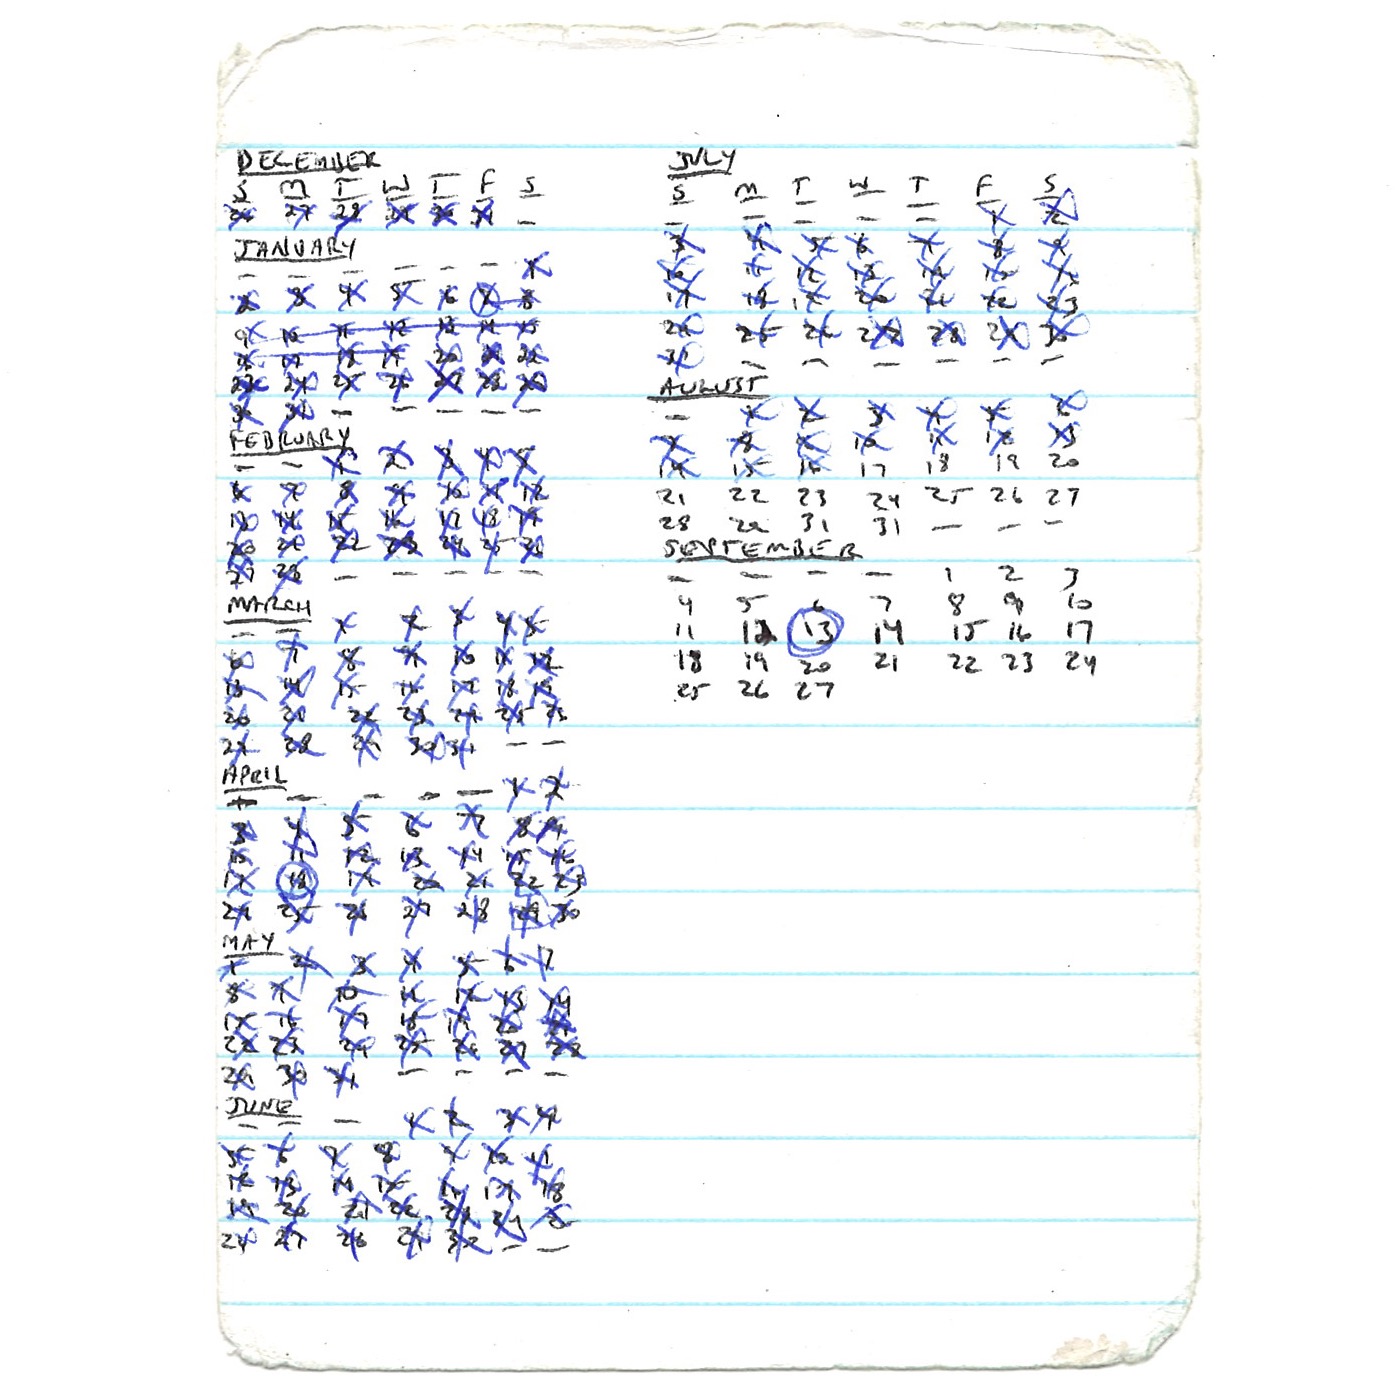 DECEMBER
S M T W T F S
26 27 28 29 30 31 –
JANUARY
– – – – – – 1
2 3 4 5 6 7 8
9 10 11 12 13 14 15
16 17 18 19 20 21 22
23 24 25 26 27 28 29
30 31 – – – – –
FEBRUARY
– – 1 2 3 4 5
6 7 8 9 10 11 12
13 14 15 16 17 18 19
20 21 22 23 24 25 26
27 28 – – – – –
MARCH
– – 1 2 3 4 5
6 7 8 9 10 11 12
13 14 15 16 17 18 19
20 21 22 23 24 25 26
27 28 29 30 31 – –
APRIL
– – – – – 1 2
3 4 5 6 7 8 9
10 11 12 13 14 15 16
17 18 19 20 21 22 23
24 25 26 27 28 29 30
MAY
1 2 3 4 5 6 7
8 9 10 11 12 13 14
15 16 17 18 19 20 21
22 23 24 25 26 27 28
29 30 31 – – – –
JUNE
– – – 1 2 3 4
5 6 7 8 9 10 11
12 13 14 15 16 17 18
19 20 21 22 23 24 25
26 27 28 29 30 – –
JULY
S M T W T F S
– – – – – 1 2
3 4 5 6 7 8 9
10 11 12 13 14 15 16
17 18 19 20 21 22 23
24 25 26 27 28 29 30
31 – – – – – –
AUGUST
– 1 2 3 4 5 6
7 8 9 10 11 12 13
14 15 16 17 18 19 20
21 22 23 24 25 26 27
28 29 31 31 – – –
SEPTEMBER
– – – – 1 2 3
4 5 6 7 8 9 10
11 12 13 14 15 16 17
18 19 20 21 22 23 24
25 26 27